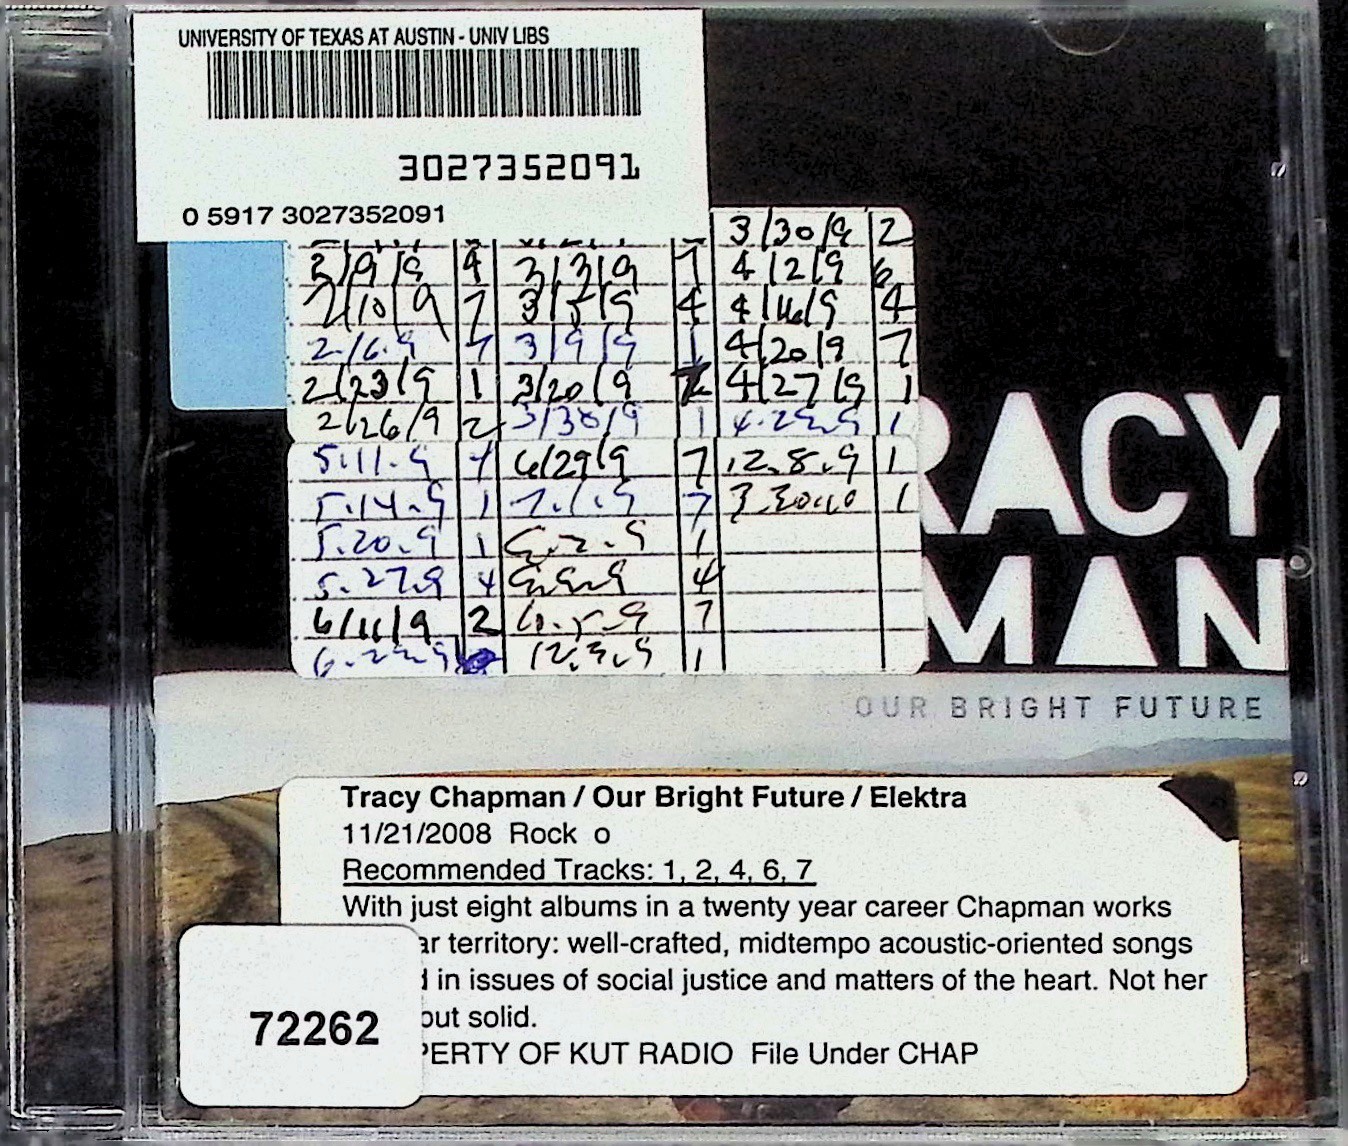 UNIVERSITY OF TEXAS AT AUSTIN - UNIV LIBS
3027352091
0 5917 3027352091
3/30/9 2
2/9/9 4 3/3/9 7 4/2/9 6
2/10/9 7 3/5/9 4 4/16/9 4
2.16.9 7 3/9/9 1 4/20/9 7
2/23/9 1 3/20/9 4/27/9 1
2/26/9 2 3/30/9 1 4.29.9 1
5.11.9 4 6/29/9 7 12.8.9 1
5.14.9 1 7.1.9 7 3.30.10 1
5.20.9 1 9.2.9 1
5.27.9 4 9.9.9 4
6/11/9 2 7
12.3.9 1
RACY
MAN
OUR BRIGHT FUTURE
Tracy Chapman / Our Bright Future / Elektra
11/21/2008 Rock o
Recommended Tracks: 1, 2, 4, 6, 7
With just eight albums in a twenty year career Chapman works
ar territory: well-crafted, midtempo acoustic-oriented songs
d in issues of social justice and matters of the heart. Not her
out solid.
PERTY OF KUT RADIO File Under CHAP
72262